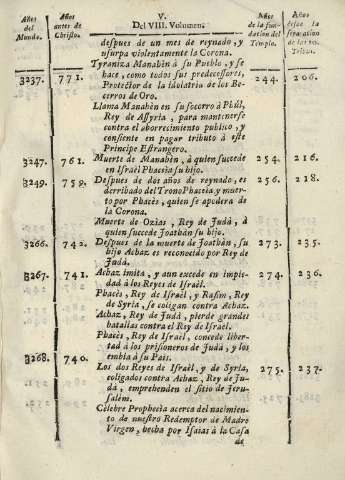 Años del Mundo.
Años antes de Christo.
V.
Del VIII. Volumen.
Años de la fundacion del Templo.
Años desde la separacion de las 10. Tribus.
despues de un mes de reynado, y
usurpa violentamente la Corona.
Tyraniza Manahèn à su Pueblo, y se
3237. 771. hace, como todos sus predecessores, 244. 206.
Protector de la idolatria de los Be-
cerros de Oro.
Llama Manahèn en su socorro à Phùl,
Rey de Assyria, para mantenerse
contra el aborrecimiento publico, y
consiente en pagar tributo à este
Principe Estrangero.
3247. 761. Muerte de Manahèn, à quien succede 254. 216.
en Israèl Phaceia su hijo.
3249. 759. Despues de dos años de reynado, es 256. 218.
derribado del Trono Phaceia, y muer-
to por Phacèe, quien se apodera de
la Corona.
Muerte de Ozias, Rey de Judà, à
quien succede Joathàn su hijo.
3266. 742. Despues de la muerte de Joathàn, su 273. 235.
hijo Achaz es reconocido por Rey de
Judà.
3267. 741. Achaz imita, y aun excede en impie- 274. 236.
dad à los Reyes de Israèl.
Phacès, Rey de Israèl, y Rasim, Rey
de Syria, se coligan contra Achaz.
Achaz, Rey de Judà, pierde grandes
batallas contra el Rey de Israèl.
Phacès, Rey de Israèl, concede liber-
tad à los prisioneros de Judà, y los
3268. 740. embia à su Pais.
Los dos Reyes de Israèl, y de Syria, 275. 237.
coligados contra Achaz, Rey de Ju-
dà, emprehenden el sitio de Jeru-
salèm.
Cèlebre Prophecia acerca del nacimien-
to de nuestro Redemptor de Madre
Virgen, hecha por Isaias à la Casa
de